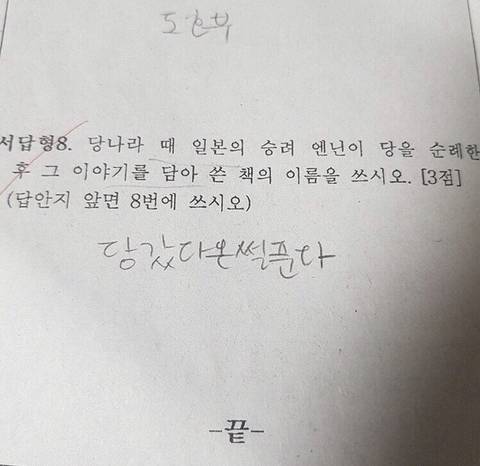 도호부
서답형8. 당나라 때 일본의 승려 엔닌이 당을 순례한
후 그 이야기를 담아 쓴 책의 이름을 쓰시오. [3점]
(답안지 앞면 8번에 쓰시오)
당갔다온썰푼다
-끝-